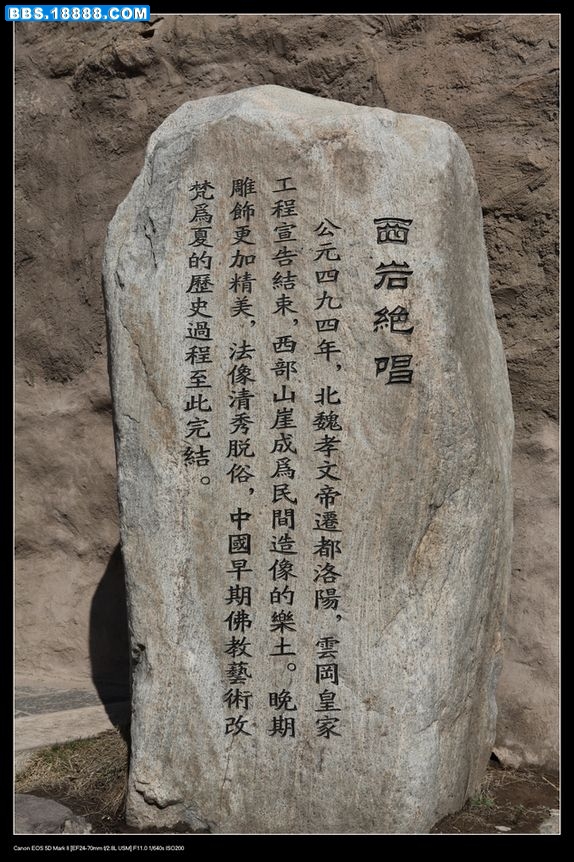 BBS.18888.COM
西岩絶唱
公元四九四年，北魏孝文帝遷都洛陽，雲岡皇家
工程宣告結束，西部山崖成爲民間造像的樂土。晚期
雕飾更加精美，法像清秀脱俗，中國早期佛教藝術改
梵爲夏的歷史過程至此完結。
Canon EOS 5D Mark II [EF24-70mm f/2.8L USM] F11.0 1/640s ISO200